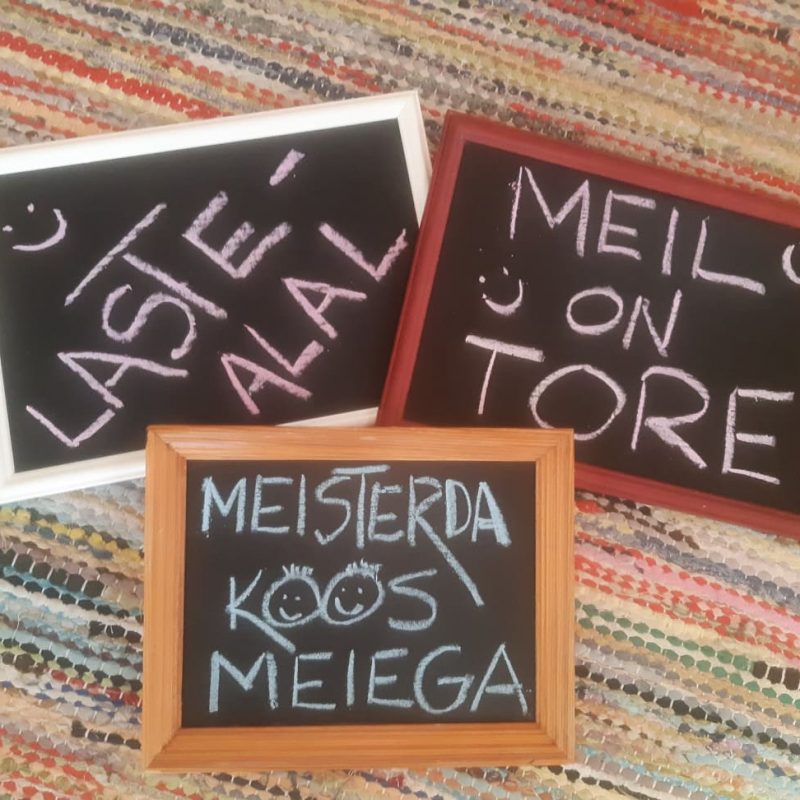 LASTE
ALAL
MEIL
ON
TORE
MEISTERDA
KOOS
MEIEGA